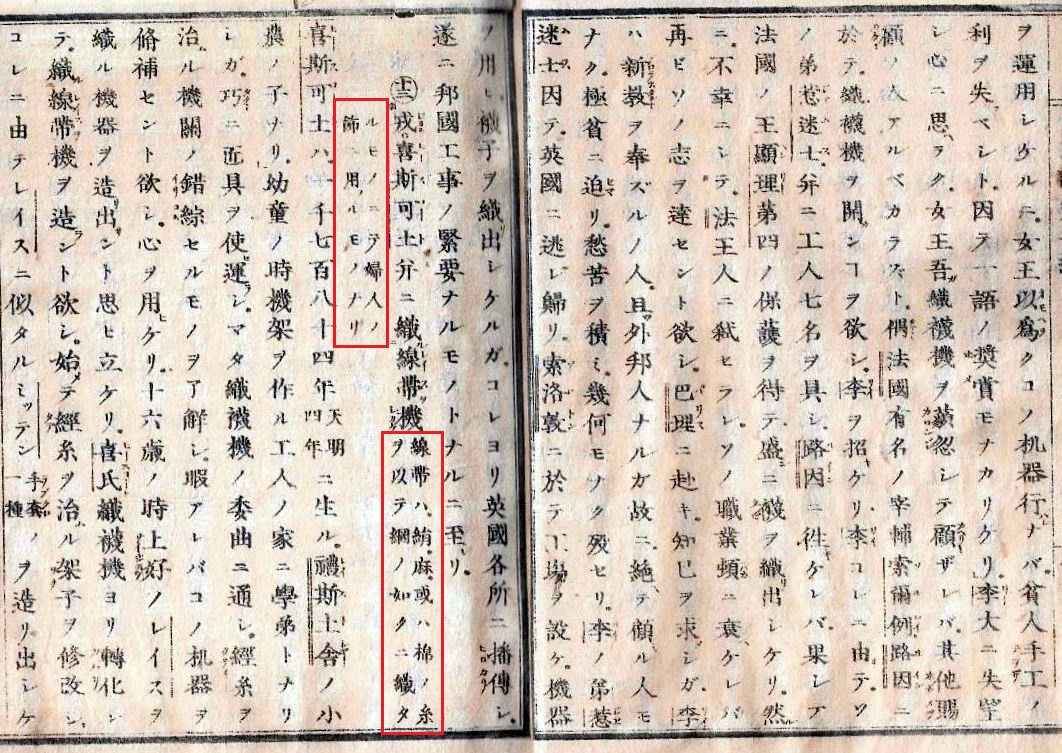 ヲ運用シケルニ。女王以爲クコノ机器行ナバ貧人手工ノ
利ヲ失ベシト。因テ一語ノ奬賞モナカリケリ。李大ニ失望
シ心ニ思ラク。女王吾織襪機ヲ藐忽シテ顧ザレバ。其他賜
顧ノ人アルベカラズト。偶法國有名ノ宰輔索爾例路因ニ
於テ。織襪機ヲ開ンヿヲ欲シ。李ヲ招ケリ李コレニ由テ。ソ
ノ弟惹迷士幷ニ工人七名ヲ具シ。路因ニ徃ケレバ果シテ
法國ノ王顯理第四ノ保護ヲ得テ盛ニ襪ヲ織出シケリ。然
ニ。不幸ニシテ。法王人ニ弑セラレ。ソノ職業頓ニ衰ケレバ
再ビソノ志ヲ達セント欲シ。巴理ニ赴キ。知己ヲ求シガ。李
ハ新敎ヲ奉ズルノ人。且外邦人ナルガ故ニ。絶テ顧ル人モ
ナク。極貧ニ迫リ。愁苦ヲ積ミ。幾何モナク歿セリ。李ノ弟惹
迷士因テ。英國ニ逃レ歸リ。索洛敦ニ於テ工塲ヲ設ケ。機器
ノ用ヒ襪子ヲ織出シケルガ。コレヨリ英國各所ニ播傳シ。
遂ニ邦國工事ノ緊要ナルモノトナルニ至リ。
十三 戎喜斯可土幷ニ織線帶機 線帶ハ。絹。麻。或ハ棉ノ糸
ヲ以テ綱ノ如クニ織タ
ルモノニテ婦人ノ
飾ニ用ルモノナリ
喜斯可土ハ。一千七百八十四年 天明四年 ニ生ル。禮斯土舍ノ小
農ノ子ナリ。幼童ノ時機架ヲ作ル工人ノ家ニ學弟トナリ
シガ。巧ニ匠具ヲ使運シ。マタ織襪機ノ委曲ニ通シ。經糸ヲ
治ル機關ノ錯綜セルモノヲ了解シ。暇アレバコノ机器ヲ
脩補セント欲シ。心ヲ用ヒケリ。十六歲ノ時上好ノレイスヲ
織ル機器ヲ造出ント思ヒ立ケリ。喜氏織襪機ヨリ轉化シ
テ。織線帶機ヲ造ラント欲シ。始テ經糸ヲ治ル架子ヲ修改シ。
コレニ由テレイスニ似タルミッテン 手套ノ一種 ヲ造リ出シケ